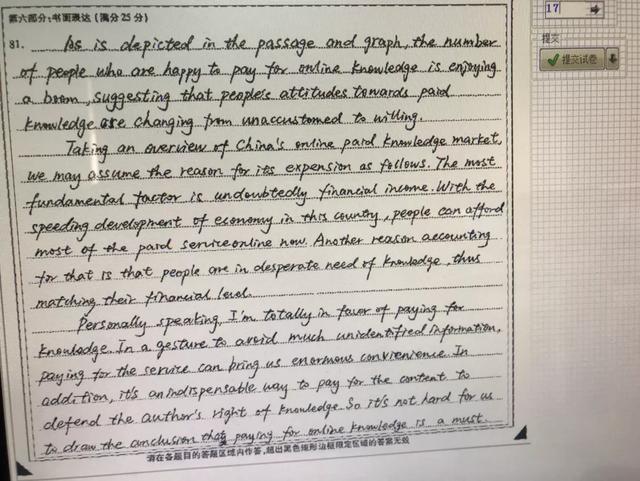 第六部分：书面表达（满分 25 分）
17
提交
提交试卷
81. As is depicted in the passage and graph, the number
of people who are happy to pay for online knowledge is enjoying
a boom, suggesting that people's attitudes towards paid
knowledge are changing from unaccustomed to willing.
Taking an overview of China's online paid knowledge market,
we may assume the reason for its expension as follows. The most
fundamental factor is undoubtedly financial income. With the
speeding development of economy in this country, people can afford
most of the paid service online now. Another reason accounting
for that is that people are in desperate need of knowledge, thus
matching their financial level.
Personally speaking, I'm totally in favor of paying for
knowledge. In a gesture to avoid much unidentified information,
paying for the service can bring us enormous convienience. In
addition, it's an indispensable way to pay for the content to
defend the author's right of knowledge. So it's not hard for us
to draw the conclusion that paying for online knowledge is a must.
请在各题目的答题区域内作答，超出黑色矩形边框限定区域的答案无效